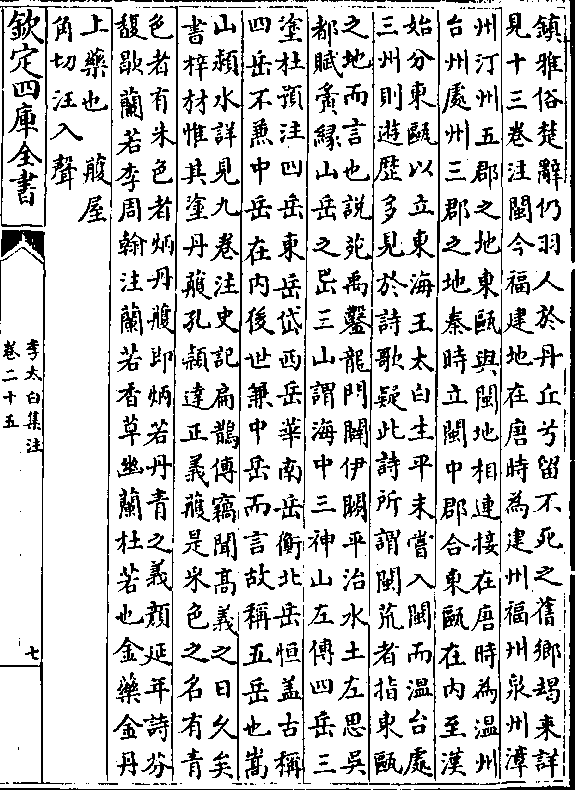 鎮雅俗楚辭仍羽人於丹丘兮留不死之舊鄉朅来詳
見十三卷注閩今福建地在唐時為建州福州泉州漳
州汀州五郡之地東甌與閩地相連接在唐時為温州
台州處州三郡之地秦時立閩中郡合東甌在内至漢
始分東甌以立東海王太白生平未嘗入閩而温台處
三州則遊歴多見於詩歌疑此詩所謂閩荒者指東甌
之地而言也說苑禹鑿龍門闢伊闕平治水土左思吳
都賦夤縁山岳之岊三山謂海中三神山左傳四岳三
塗杜預注四岳東岳岱西岳華南岳衡北岳恒盖古稱
四岳不兼中岳在内後世兼中岳而言故稱五岳也嵩
山潁水詳見九卷注史記扁鵲傳竊聞髙義之日久矣
書梓材惟其塗丹雘孔頴達正義雘是采色之名有青
色者有朱色者炳丹雘即炳若丹青之義顔延年詩芬
馥歇蘭若李周翰注蘭若香草幽蘭杜若也金藥金丹
上藥也　雘屋
角切汪入聲
欽定四庫全書
李太白集注
卷二十五
七